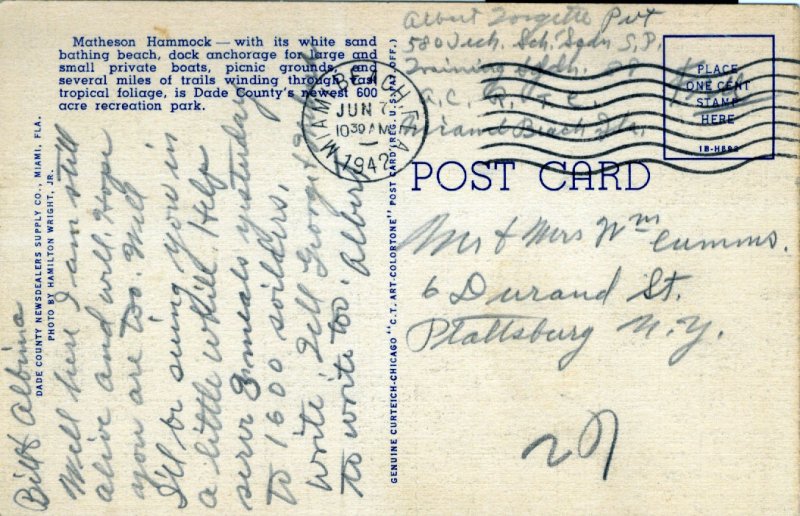 Matheson Hammock — with its white sand
bathing beach, dock anchorage for large and
small private boats, picnic grounds, and
several miles of trails winding through vast
tropical foliage, is Dade County's newest 600
acre recreation park.
DADE COUNTY NEWSDEALERS SUPPLY CO., MIAMI, FLA.
PHOTO BY HAMILTON WRIGHT, JR.
Bill & Albina
Well here I am still
alive and will. Hope
you are too. Will
I'll be seing you in
a little while. Help
serve 3 meals yesturday
to 1600 soilders,
write. Tell Georgie
to write too. Albert
GENUINE CURTEICH-CHICAGO "C.T. ART-COLORTONE" POST CARD (REG. U.S. PAT. OFF.)
MIAMI BEACH, FLA
JUN 7
10 30 AM
1942
Albert Forgette Pvt
580 Tech. Sch. Sqdn S.P.
Training
A.C. R.T.C.
Miami Beach Fla.
PLACE
ONE CENT
STAMP
HERE
1B-H892
POST CARD
Mr & Mrs Wm Cummins.
6 Durand St.
Plattsburg N.Y.